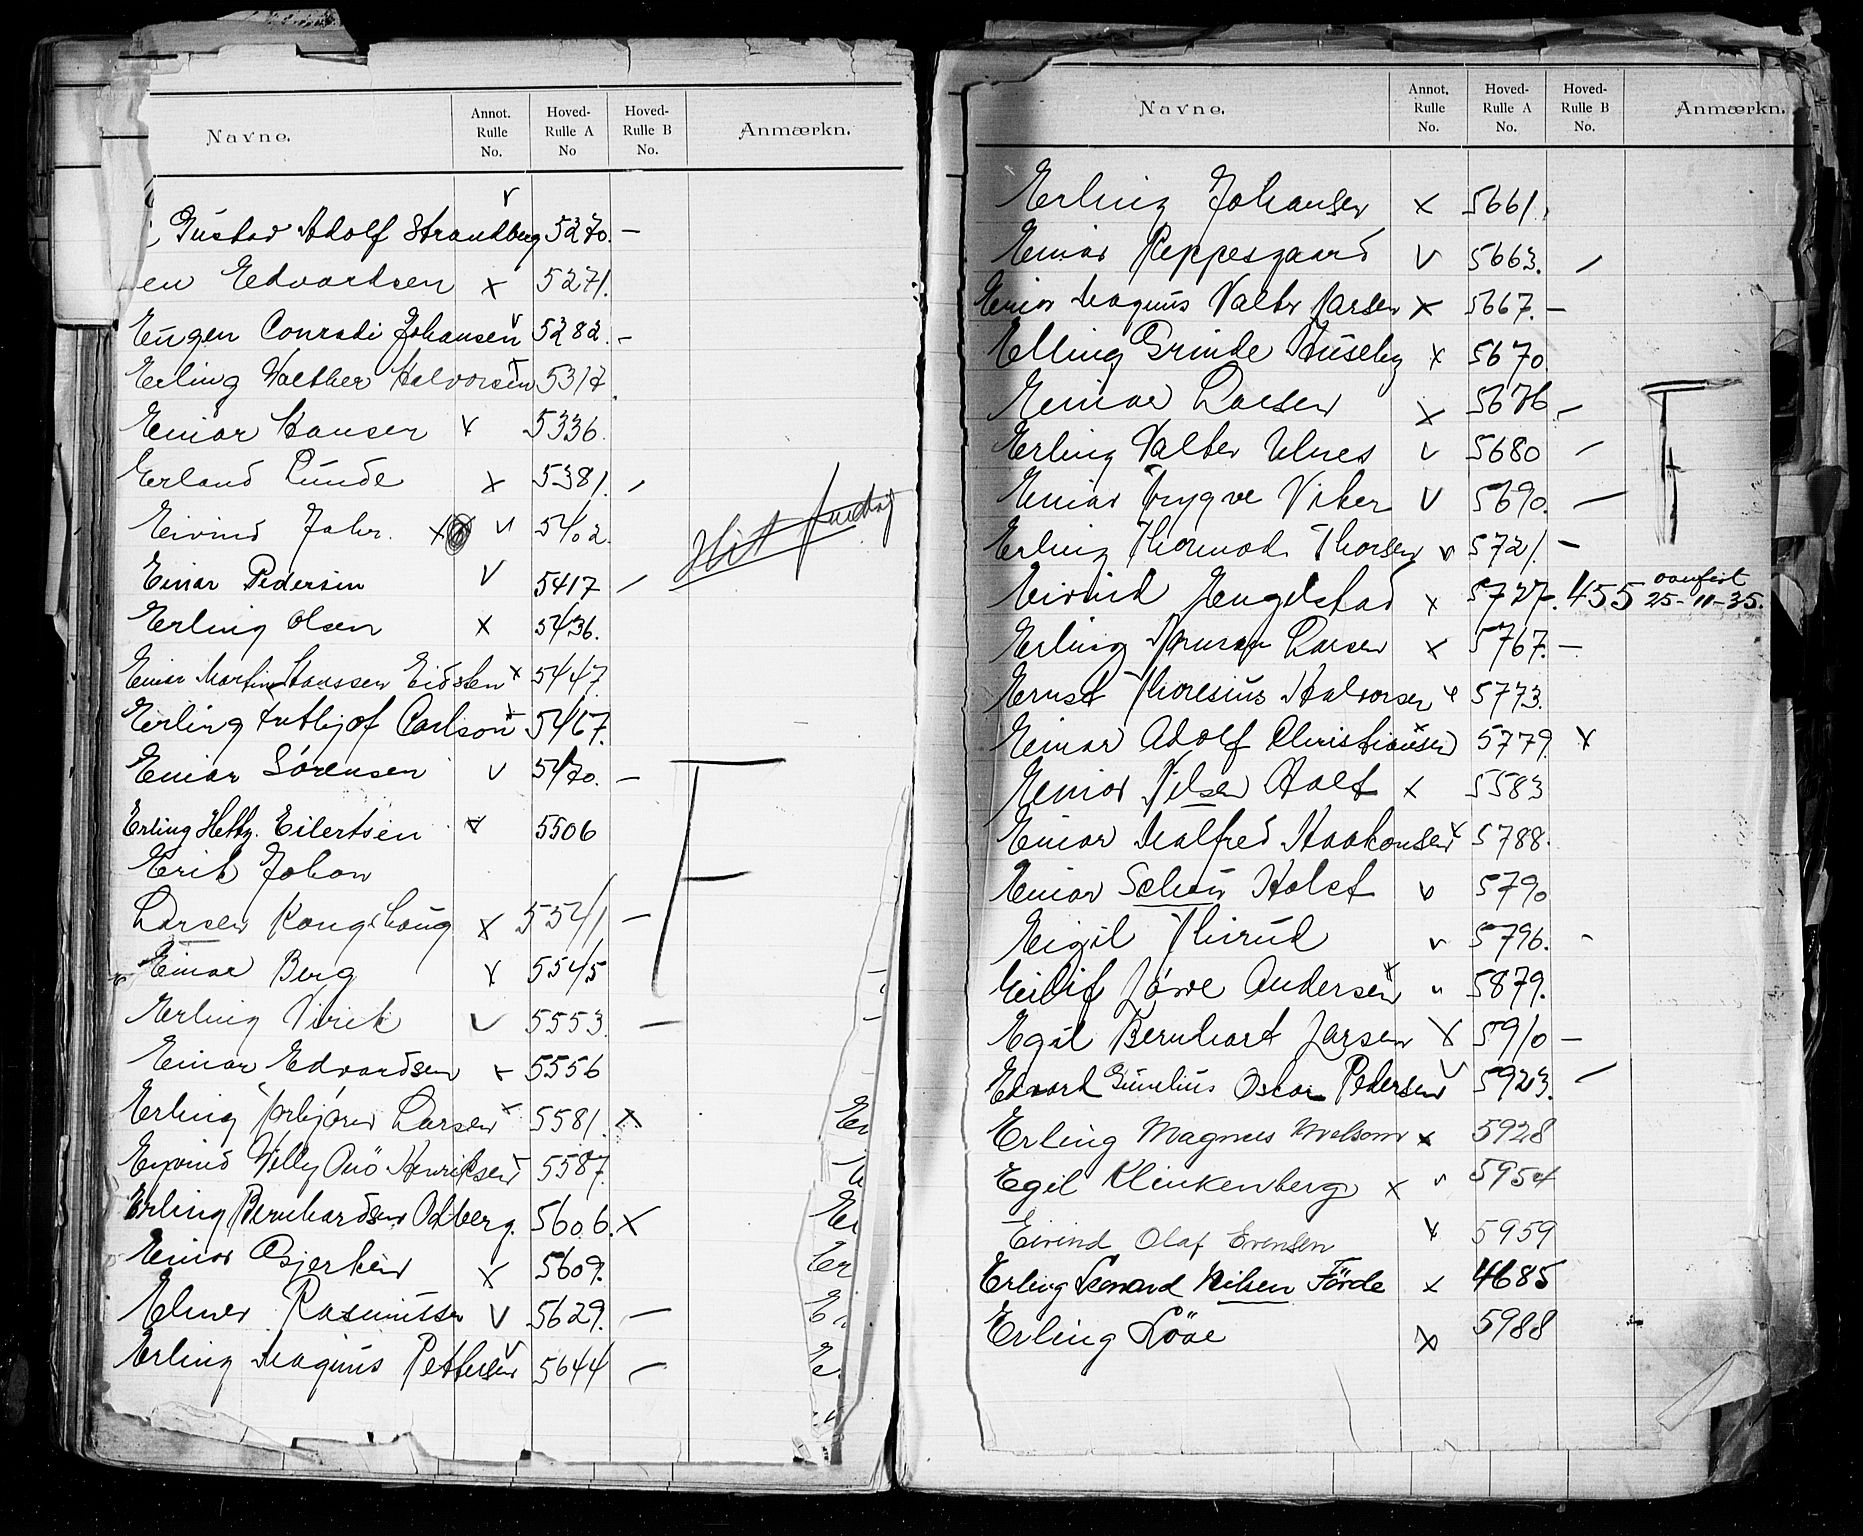 Navne. Annot. Rulle No. Hoved-Rulle A No Hoved-Rulle B No. Anmærkn.
v
Gustav Adolf Strandberg 5270. —
en Edvardsen x 5271.
Eugen Conradi Johansen v 5282. —
Erling Walther Halvorsen 5317.
Einar Hansen x 5336.
Erland Lunde x 5381. —
Eivind Jahr. x v 5402.
Einar Pedersen v 5417 —
Erling Olsen x 5436.
Einar Martin Hanssen Eidsten x 5447.
Erling Carlson x 5467.
Einar Sørensen v 5470. —
Erling Hettg. Eilertsen x 5506
Erik Johan
Larsen Kongshaug x 5541 —
Einar Berg x 5545
Erling Virik v 5553. —
Einar Edvardsen x 5556
Erling Torbjørn Larsen x 5581. x
Eyvind Willy Henriksen 5587.
Erling Bernhardsen Odberg. 5606. x
Einar Bjerkén x 5609.
Elmer Rasmussen v 5629. —
Erling Magnus Pettersen v 5644 —
Hit
F
Er
Er
Navne. Annot. Rulle No. Hoved-Rulle A No. Hoved-Rulle B No. Anmærkn.
Erling Johansen x 5661.
Einar Peppesgaard v 5663. —
Einar Magnus Valter Larsen x 5667. —
Elling Grinde Huseby x 5670
Einar Larsen x 5676. —
Erling Valter Ulnes v 5680 —
Einar Trygve Viker v 5690. —
Erling Thormod Thorsen v 5721. —
Eivind Hengelstad x 5727. 455 overført 25-11-35.
Erling Larsen x 5767. —
Ernst Thoresius Halvorsen x 5773.
Einar Adolf Christiansen x 5779. x
Einar Nilsen Holt x 5583
Einar Malfred Haakonsen x 5788.
Einar Holst v 5790
Eigil Thirud v 5796. -
Eilif Andersen x " 5879.
Egil Bernhart Larsen x 5910 —
Edvard Oskar Pedersen v 5923. —
Erling Magnus x 5928
Egil Klinkenberg x v 5954
Eivind Olaf Evensen x 5959
Erling Leonard Nilsen Förde x 4685
Erling Lööe x 5988
F